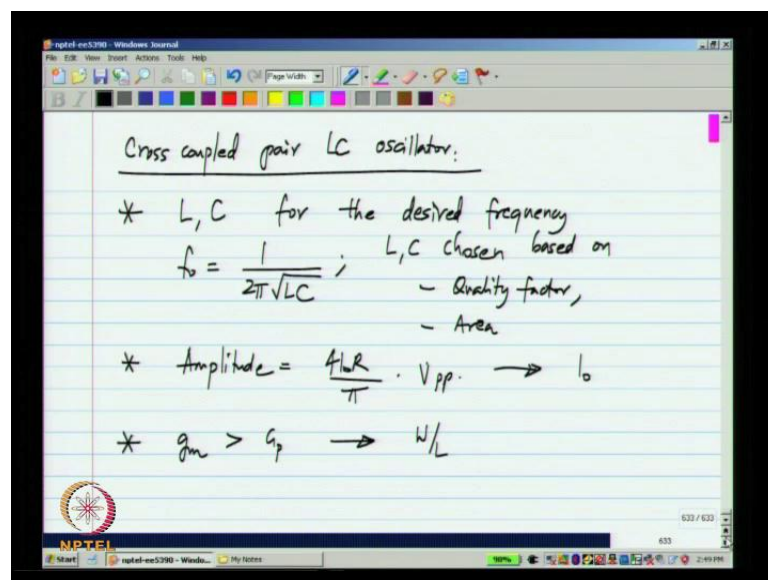 nptel-ee5390 - Windows Journal
File Edit View Insert Actions Tools Help
Page Width
B I
Cross coupled pair LC oscillator:
* L, C for the desired frequency
f₀ = 1 / 2π√LC ; L, C chosen based on
- Quality factor,
- Area
* Amplitude = 4I₀R / π . Vpp. → I₀
* gm > Gp → W/L
NPTEL
633 / 633
633
Start nptel-ee5390 - Windo... My Notes 90% 2:49 PM